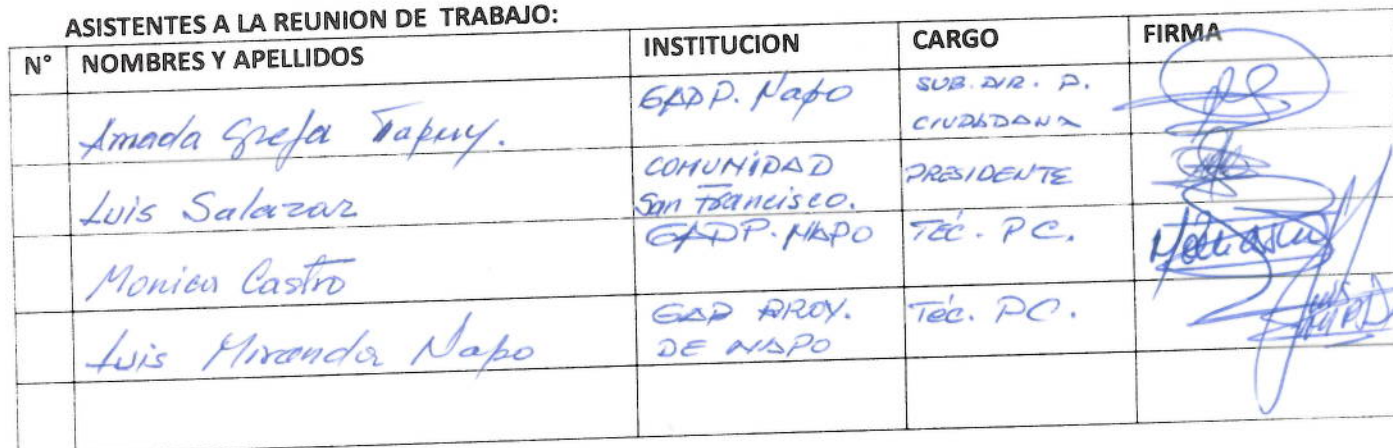 ASISTENTES A LA REUNION DE TRABAJO:
N° NOMBRES Y APELLIDOS INSTITUCION CARGO FIRMA
Amada Grefa Tapuy. GADP. Napo SUB. DIR. P. CIUDADANA
Luis Salazar COMUNIDAD San Francisco. PRESIDENTE
Monica Castro GADP. NAPO TÉC. P C.
Luis Miranda Napo GAD PROV. DE NAPO Téc. PC.